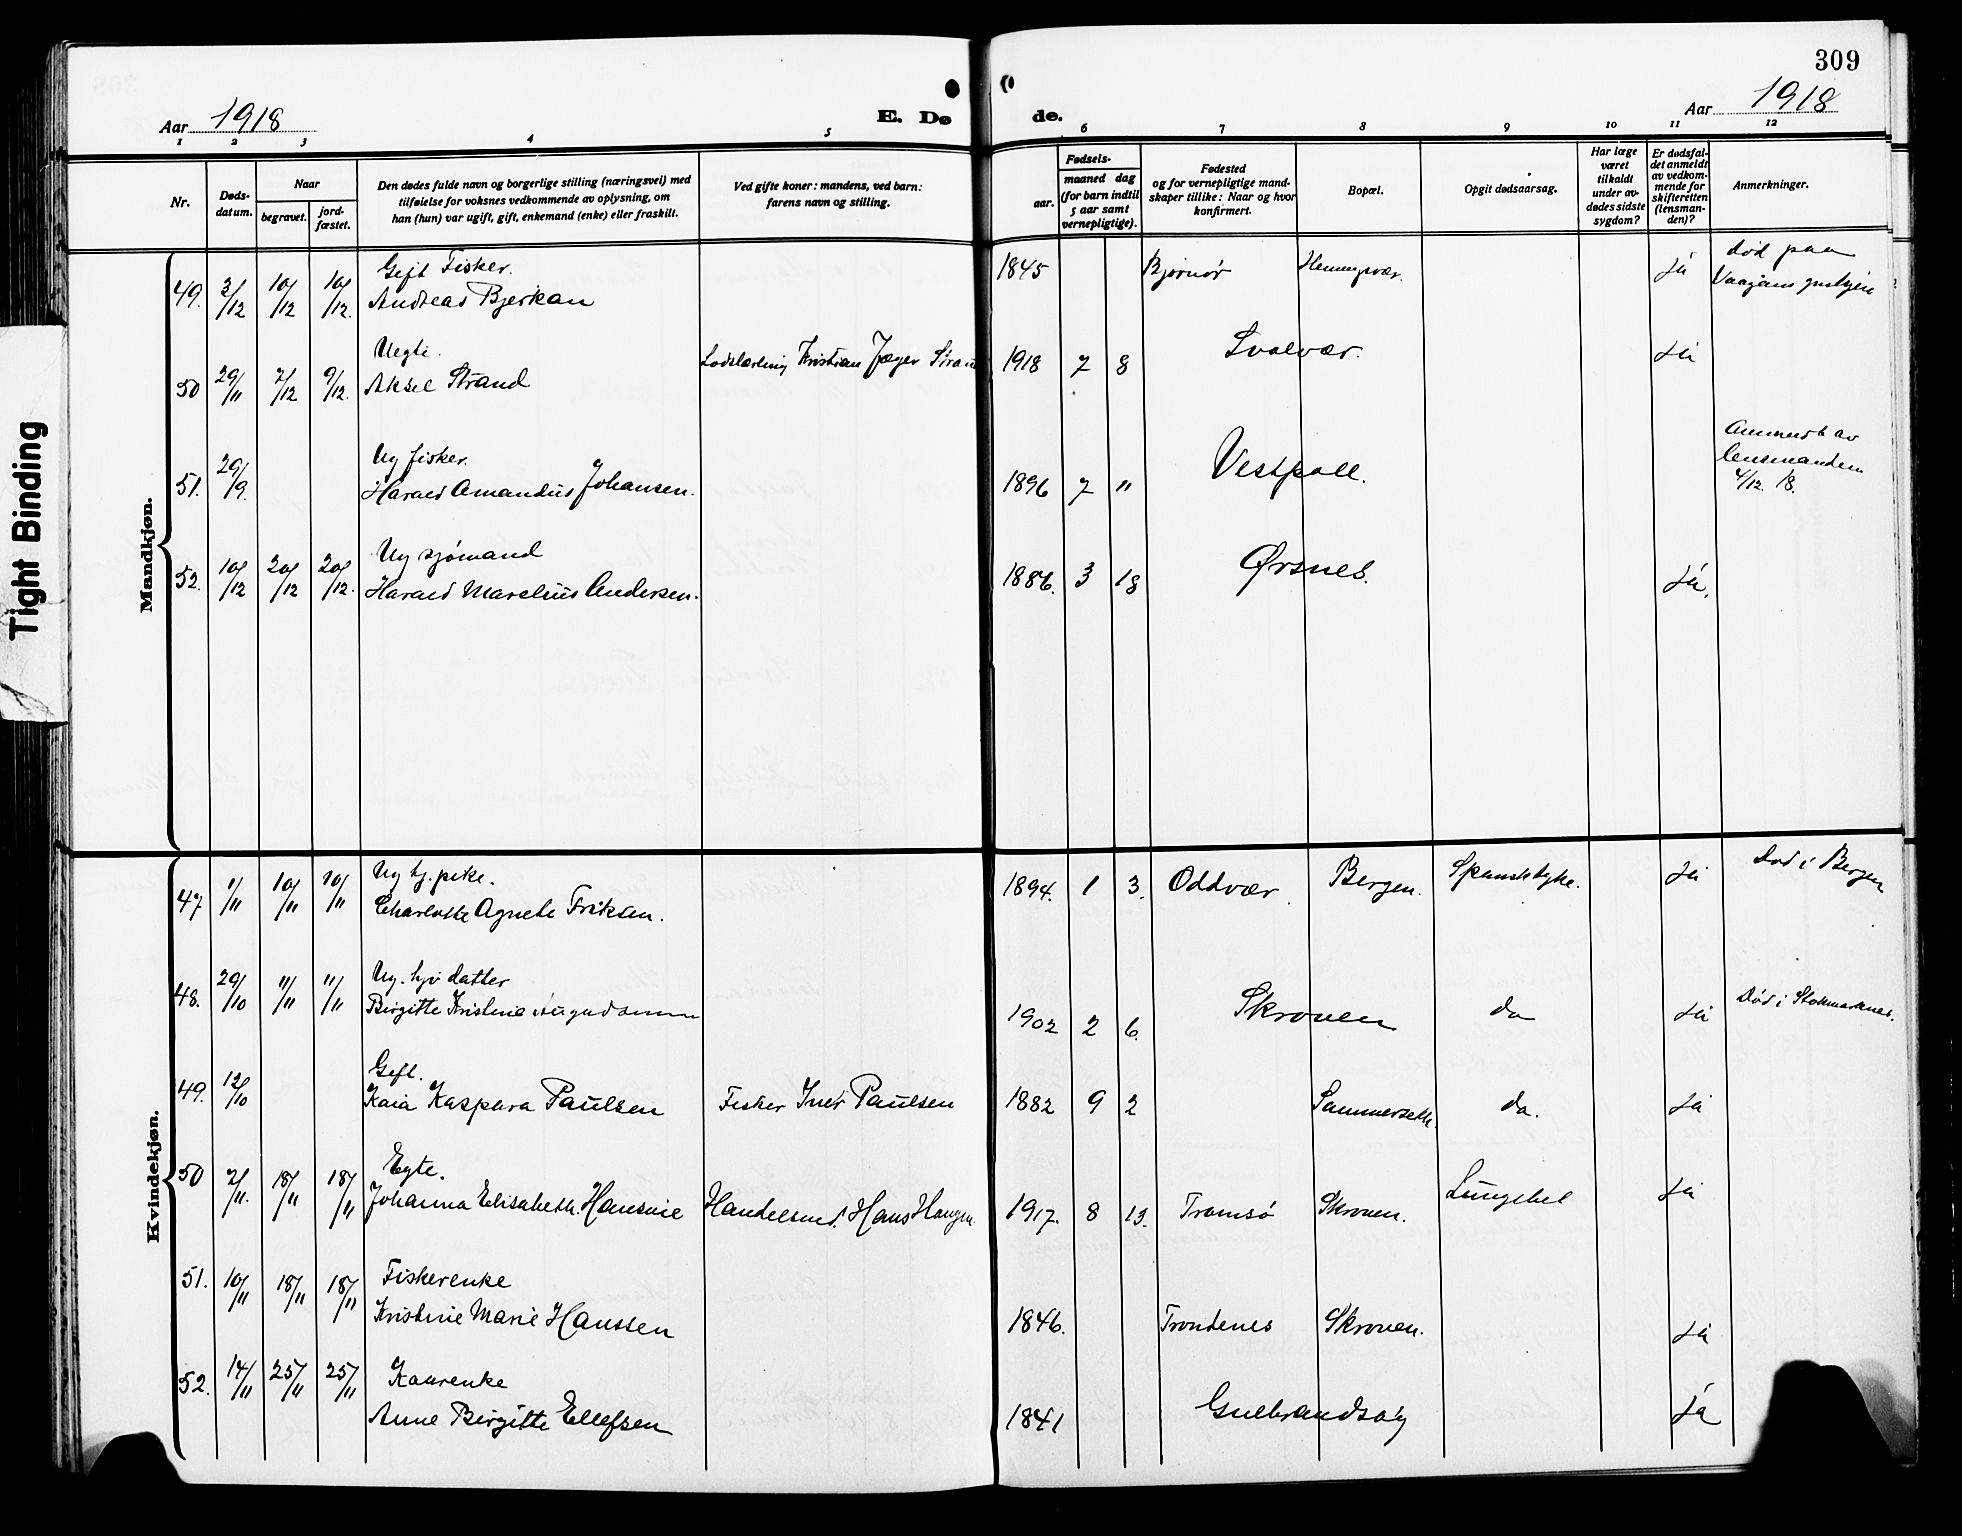 309
Aar 1918
E. Døde.
Aar 1918
1 2 3 4 5 6 7 8 9 10 11 12
Nr.
Døds-
datum.
Naar
begravet.
jord-
fæstet.
Den dødes fulde navn og borgerlige stilling (næringsvei) med
tilføielse for voksnes vedkommende av oplysning, om
han (hun) var ugift, gift, enkemand (enke) eller fraskilt.
Ved gifte koner: mandens, ved barn:
farens navn og stilling.
Fødsels-
aar.
maaned dag
(for barn indtil
5 aar samt
vernepligtige).
Fødested
og for vernepligtige mand-
skaper tillike: Naar og hvor
konfirmert.
Bopæl.
Opgit dødsaarsag.
Har læge
været
tilkaldt
under av-
dødes sidste
sygdom?
Er dødsfal-
det anmeldt
av vedkom-
mende for
skifteretten
(lensman-
den)?
Anmerkninger.
Tight Binding
Mandkjøn.
Gift Fisker.
49. 3/12 10/12 10/12. Andreas Bjerkan 1845 Bjørnør Henningsvær. Ja Død paa
Vaagans
Uegte.
50 29/11 7/12 9/12. Aksel Strand Kristian Jæger 1918 7 8 Svolvær. Ja
Ug fisker.
51. 29/9. Harald Amandus Johansen. 1896 7 " Vestpoll. av
lensmanden
4/12. 18.
Ug sjømand
52. 10/12 20/12 20/12. Harald Marelius Andersen. 1886. 3 18 Ørsnes. Ja.
Kvindekjøn.
Ug tj. pike.
47 1/11 10/11 10/11 Charlotte Agnete Eriksen. 1894. 1 3. Oddvær Bergen. Spansksyke. Ja Død i Bergen
Ug. hjv datter
48. 29/10 11/11 11/11 Birgitte Kristine 1902 2 6. Skroven do Ja Død i Stokmarknes.
Gift.
49. 12/10 Kaia Kaspara Paulsen Fisker Paulsen 1882 9 2 Sammersette. do. Ja
Egte.
50 2/11. 18/11 18/11 Johanna Elisabeth. Handelsmd. Hans 1917. 8 13. Tromsø Skroven. Ja
Fiskerenke
51. 10/11 18/11 18/11 Kristine Marie Hanssen 1846. Trondenes Skroven. Ja
Kaarenke
52. 14/11 25/11 25/11 Anne Birgitte Ellefsen 1841 Gulbrandsøy Ja